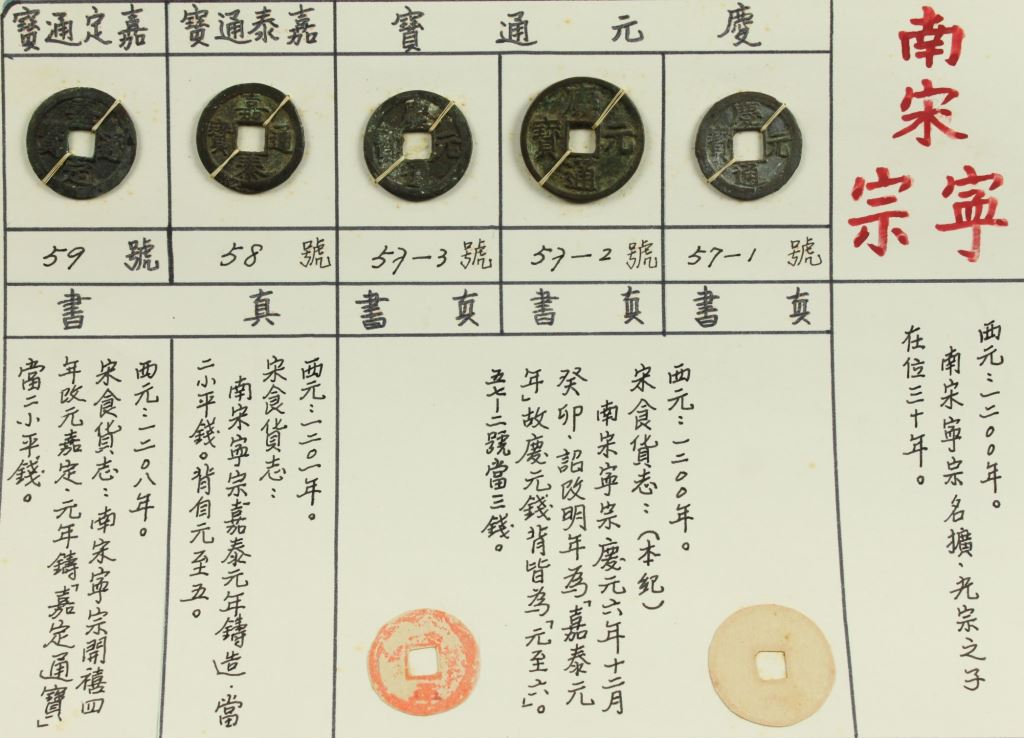 南宋
寧宗
西元：一二００年。
南宋寧宗名擴、光宗之子
在位三十年。
慶元通寶
慶元通寶
57-1 號
真書
慶元通寶
57-2 號
真書
慶元通寶
57-3 號
真書
西元：一二００年。
宋食貨志：（本紀）
南宋寧宗慶元六年十二月
癸卯、詔改明年為「嘉泰元
年」故慶元錢背皆為「元至六」。
五七-二號當三錢。
嘉泰通寶
嘉泰通寶
58 號
嘉定通寶
嘉定通寶
59 號
真書
西元：一二０一年。
宋食貨志：
南宋寧宗嘉泰元年鑄造．當
二小平錢。背自元至五。
西元：一二０八年。
宋食貨志：南宋寧宗開禧四
年改元嘉定、元年鑄「嘉定通寶」
當二小平錢。